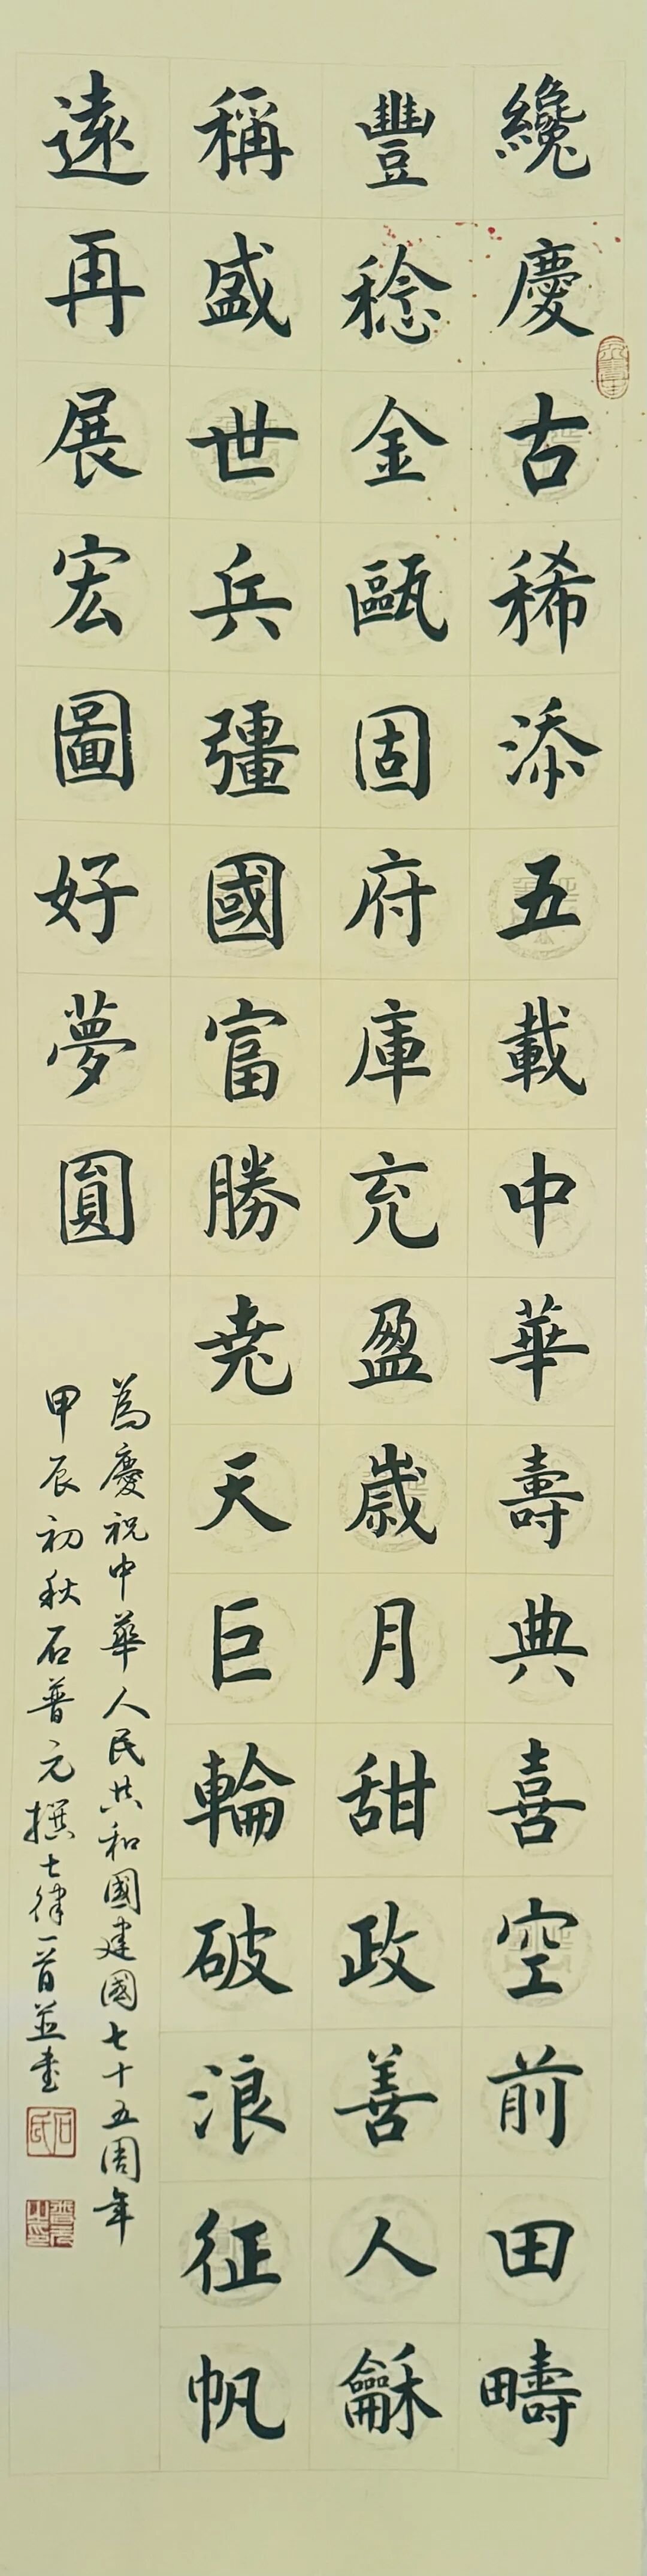 纔慶古稀添五載中華壽典喜空前田疇
豐稔金甌固府庫充盈歲月甜政善人龢
稱盛世兵彊國富勝堯天巨輪破浪征帆
遠再展宏圖好夢圓
為慶祝中華人民共和國建國七十五周年
甲辰初秋石普元撰七律一首並書
石氏
普元之印